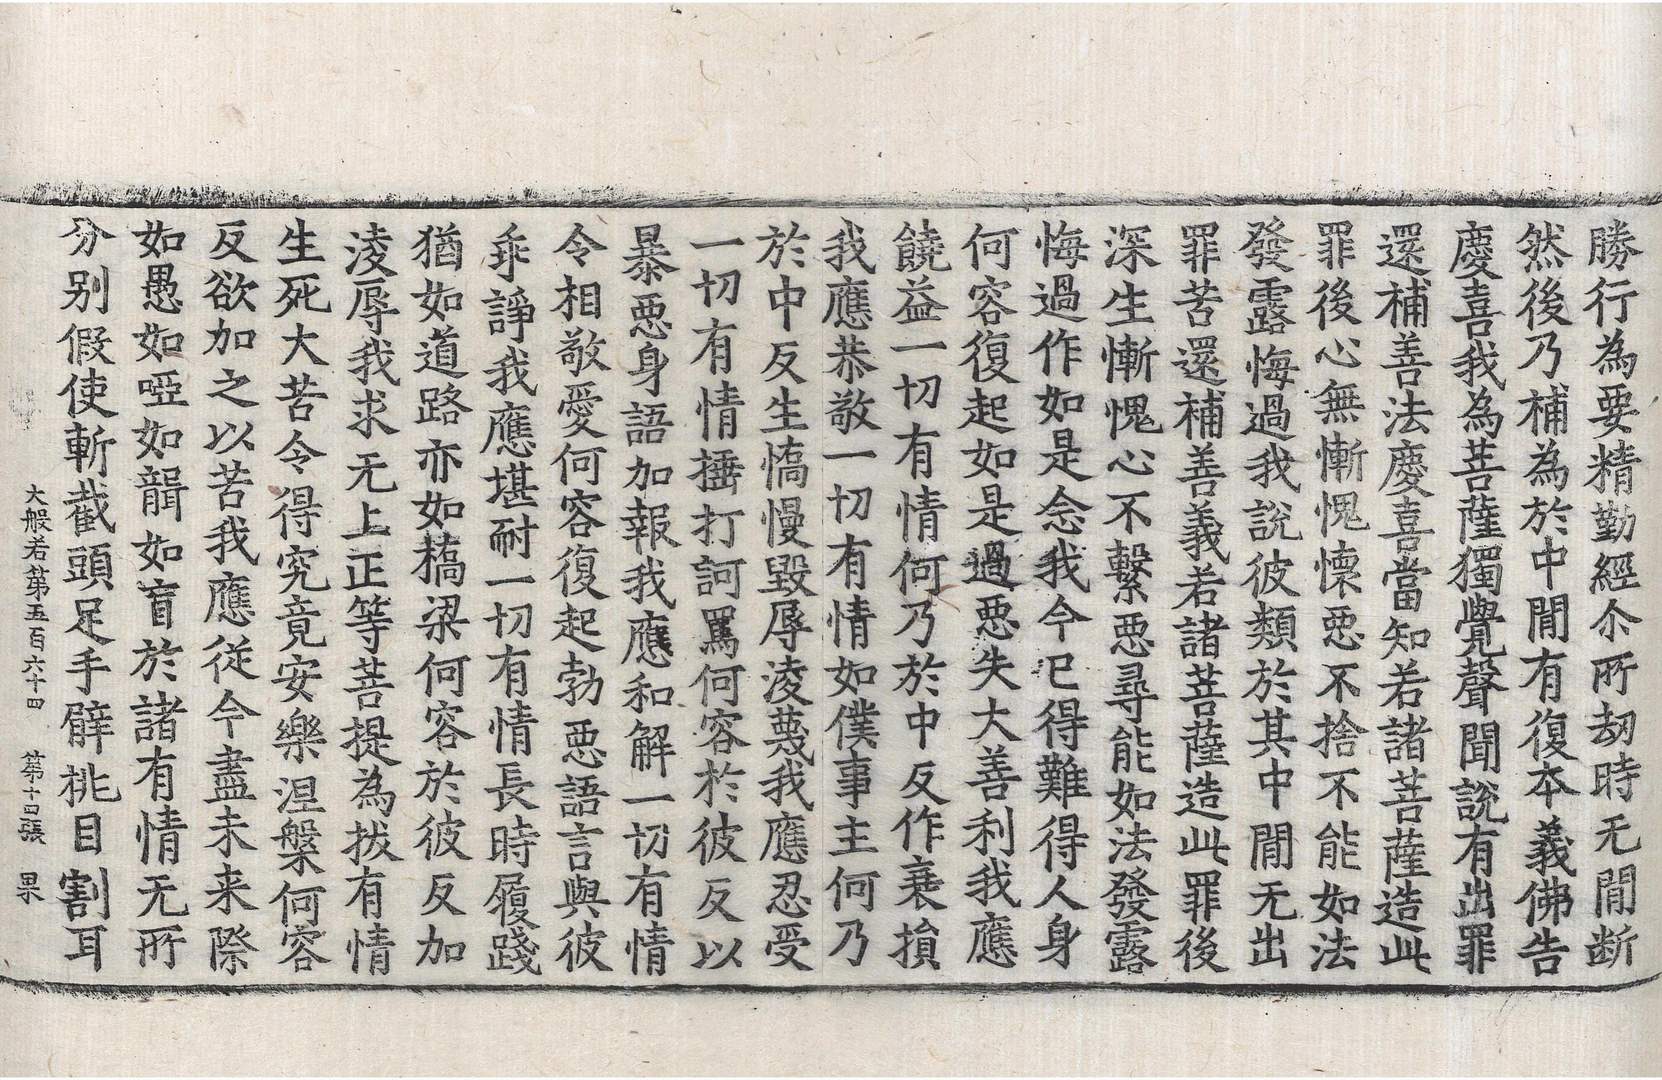 勝行為要精勤經尒所劫時无閒断
然後乃補為於中閒有復本義佛告
慶喜我為菩薩獨覺聲聞說有出罪
還補善法慶喜當知若諸菩薩造此
罪後心無慚愧懷惡不捨不能如法
發露悔過我說彼類於其中閒无出
罪苦還補善義若諸菩薩造此罪後
深生慚愧心不繫惡尋能如法發露
悔過作如是念我今已得難得人身
何容復起如是過惡失大善利我應
饒益一切有情何乃於中反作衰損
我應恭敬一切有情如僕事主何乃
於中反生憍慢毀辱淩蔑我應忍受
一切有情捶打訶罵何容於彼反以
暴惡身語加報我應和解一切有情
令相敬愛何容復起勃惡語言與彼
乖諍我應堪耐一切有情長時履踐
猶如道路亦如橋梁何容於彼反加
淩辱我求无上正等菩提為拔有情
生死大苦令得究竟安樂涅槃何容
反欲加之以苦我應從今盡未来際
如愚如啞如聾如盲於諸有情无所
分别假使斬截頭足手臂挑目割耳
大般若第五百六十四 第十四張 果